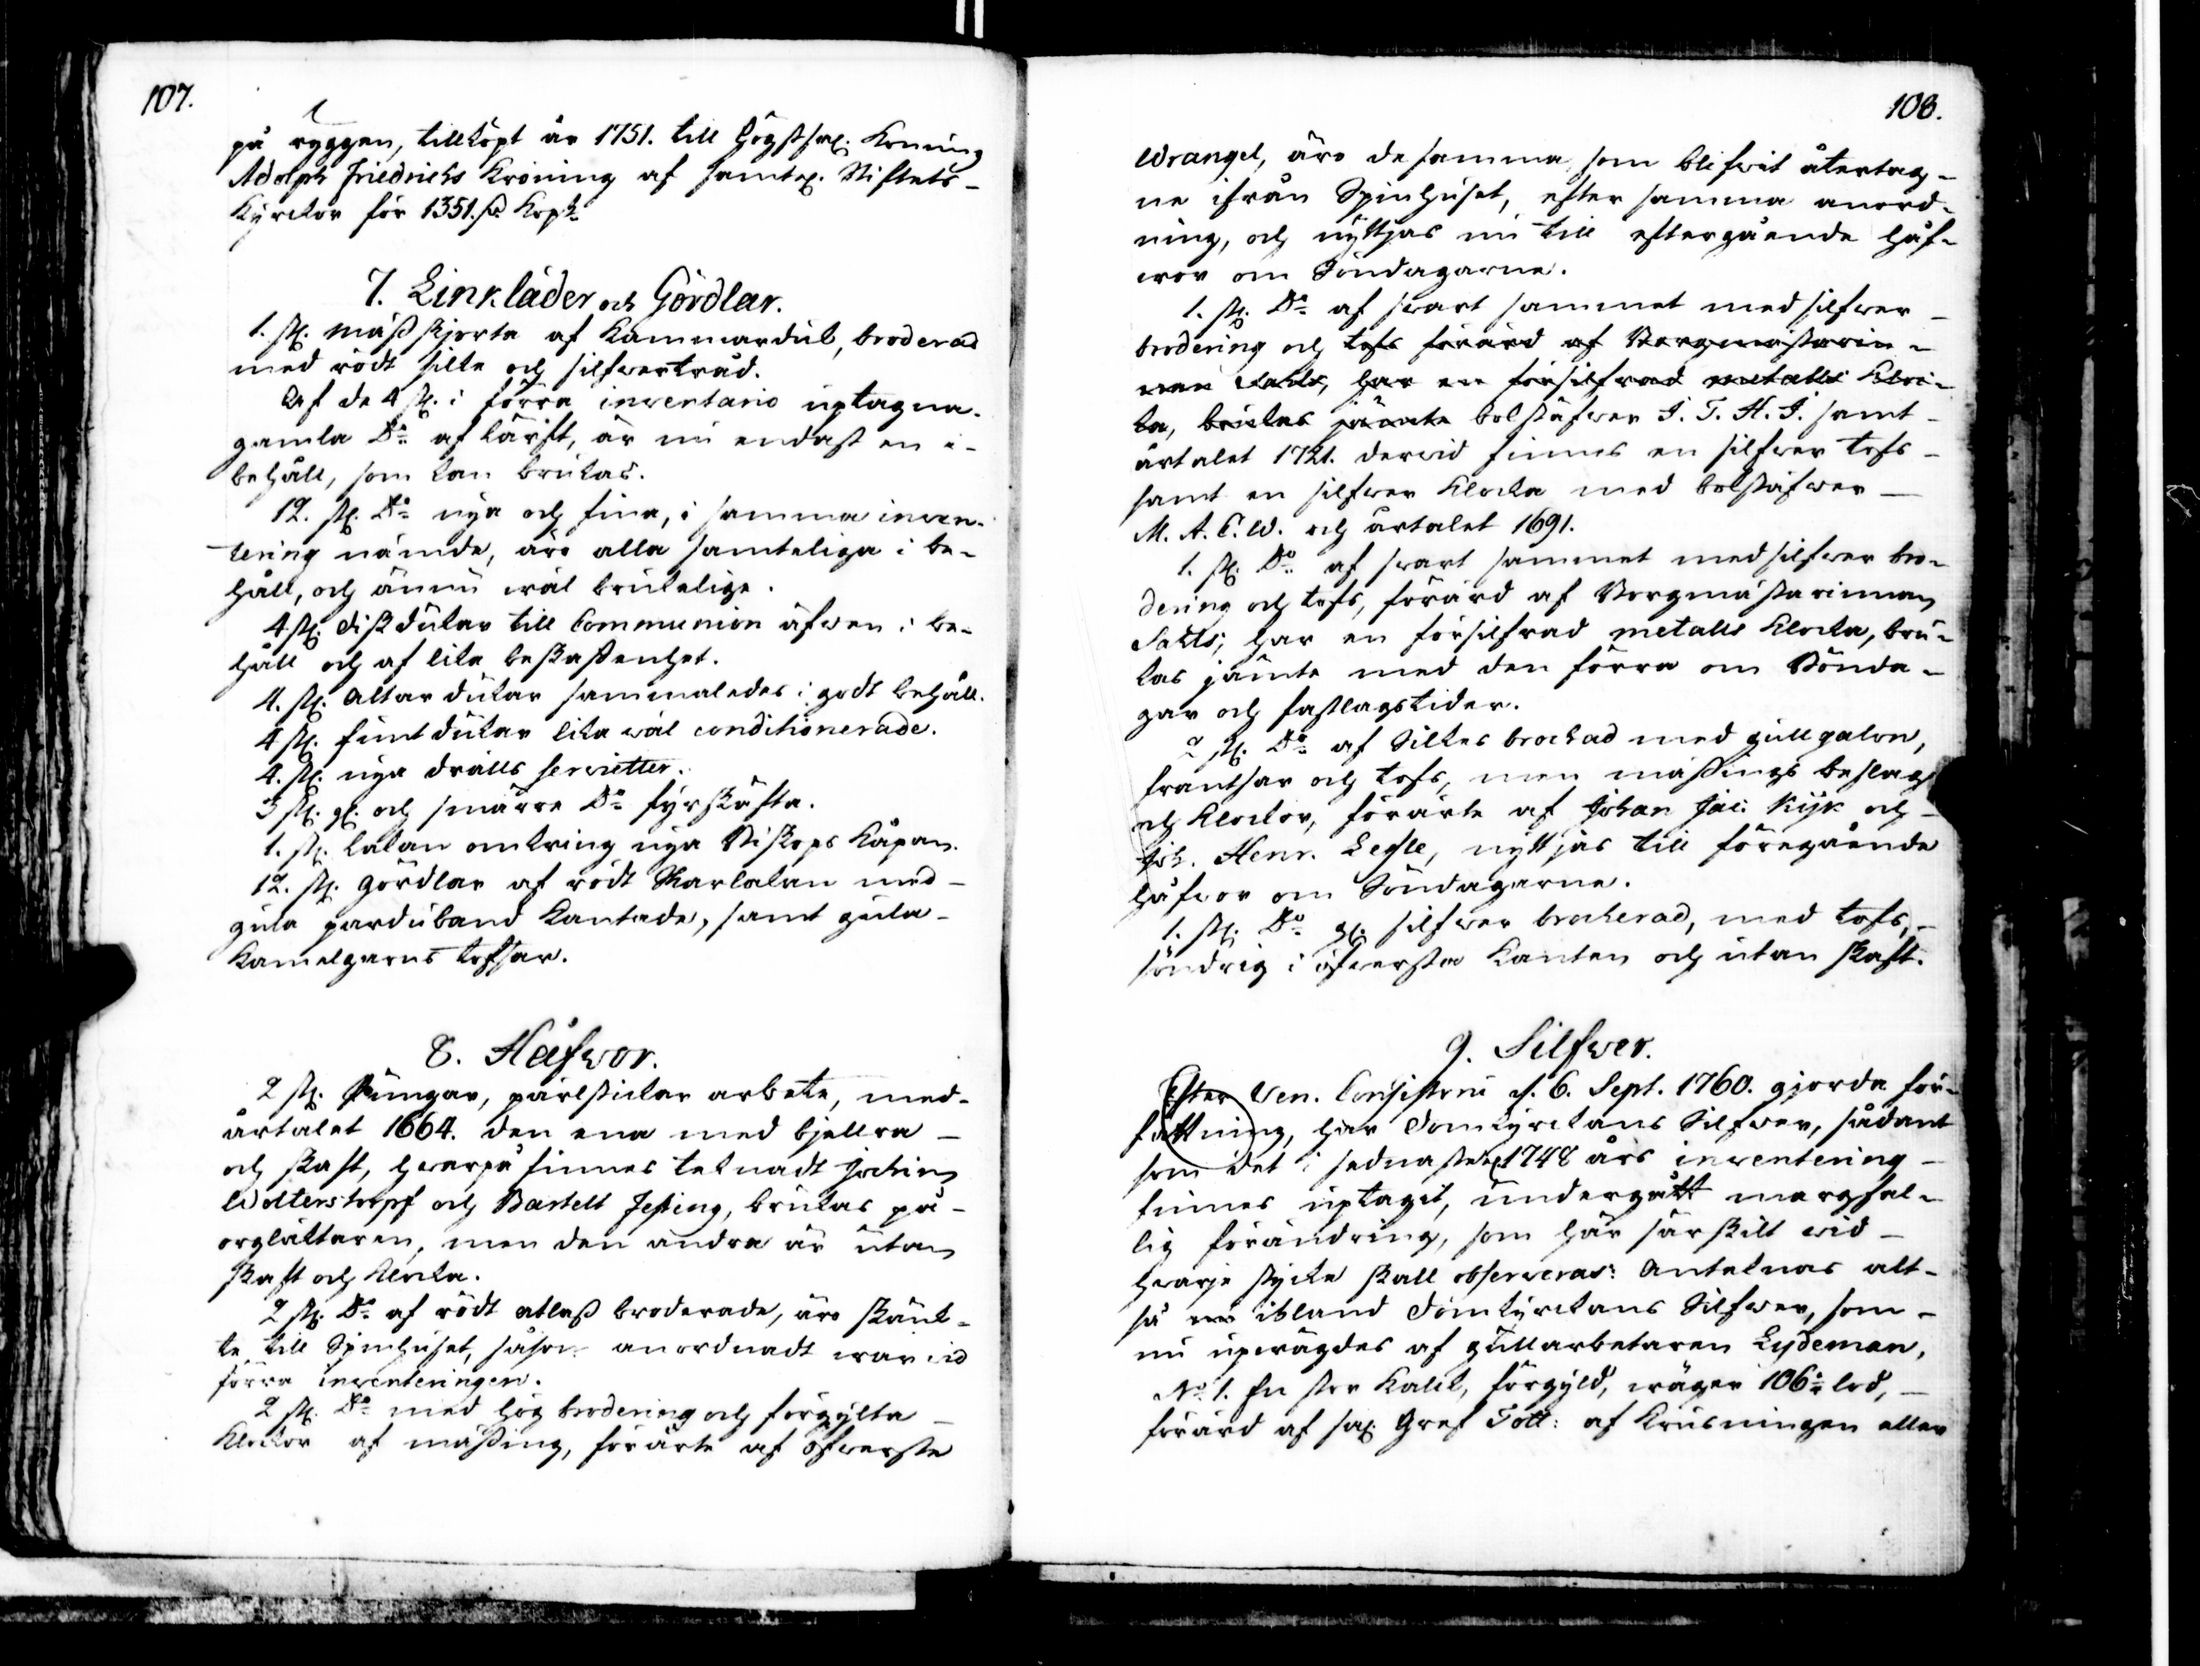 107.
på ryggen, tillköpt år 1751. till Högstsal. Konung
Adolph Friedrichs Kröning af samtl. Stiftets-
Kyrckor för 1351. Kopt.
7. Linkläder och Gördlar.
1. st. Mäss skjorta af Kammarduk, broderad
med rödt silke och silfwertråd.
Af de 4 st. i förra inventario uptagna
gamla Do af lärft, är nu endast en i-
behåll, som kan brukas.
12. st. Do nya och fina, i samma inven-
tering nämde, äro alla samteliga i be-
håll, och ännu wäl brukelige.
4 st. Diskdukar till Communion äfwen i be-
håll och af lika beskaffenhet.
4. st. Altar dukar sammaledes i godt behåll.
4 st. funt dukar lika wäl conditionerade.
4. st. nya drälls servietter.
3 st. gl. och smärre Do fyrskäfta.
1. st. lakan omkring nya Biskops Kåpan.
12. st. Gördlar af rödt Skarlakan med-
gula parduband kantade, samt gula-
Kamelgarns tofsar.
8. Håfwor.
2 st. Pungar, pärlstickar arbete, med-
årtalet 1664. den ena med bjellra
och skaft, hwarpå finnes teknadt Jochim
Wolterstorpf och Bartelt Jessing, brukas på-
orgläktaren, men den andra är utan
skaft och klocka.
2 st. Do af rödt atlass broderade, äro skänk-
te till Spinhuset, såsom anordnadt war wid
förra inventeringen.
2 st. Do med hög brodering och förgylta
Klockor af mässing, förärte af Öfwerste
108.
Wrangel, äro de samma som blifwit återtag-
ne ifrån Spinhuset, efter samma anord-
ning, och nyttjas nu till eftergående håf-
wor om Söndagarne.
1. st. Do af swart sammet med silfwer
brodering och tofs förärd af Borgmästarin-
nan Sahls, har en försilfrad metalls kloc-
ka, brukas jämte bolstäfwer J. T. H. J. samt
årtalet 1721. derwid finnes en silfwer tofs
samt en silfwer klocka med bolstäfwer
M. A. C. W. och årtalet 1691.
1. st. Do af swart sammet med silfwer bro-
dering och tofs, förärd af Borgmästarinnan
Sahls; har en försilfrad metalls klocka, bru-
kas jämte med den förra om Bönda-
gar och fastlagstider.
2 st. Do af Silkes brockad med gullgaloner,
frantsar och tofs, men mässings beslag
och klockor, förärte af Johan Jac: Kijk och
Joh. Henr. Lefle, nyttjas till föregående
håfwor om Söndagarne.
1. st. Do gl. silfwer brockerad, med tofs,
söndrig i öfwersta kanten och utan skaft.
9. Silfwer.
Efter Ven. Consistorii d. 6. Sept. 1760. gjorda för-
fattning, har Domkyrckans Silfwer, sådant
som det i sednaste 1748 års inventering
finnes uptagit, undergått margfal-
lig förändring, som här särskilt wid
hwarje stycke skall observeras: Antaknas alt-
så ibland Domkyrckans Silfwer, som
nu upwägdes af gullarbetaren Lydeman,
No 1. En stor Kalk, förgyld, wäger 106 lod,
förärd af sal. Gref Tott: af Krusningen eller